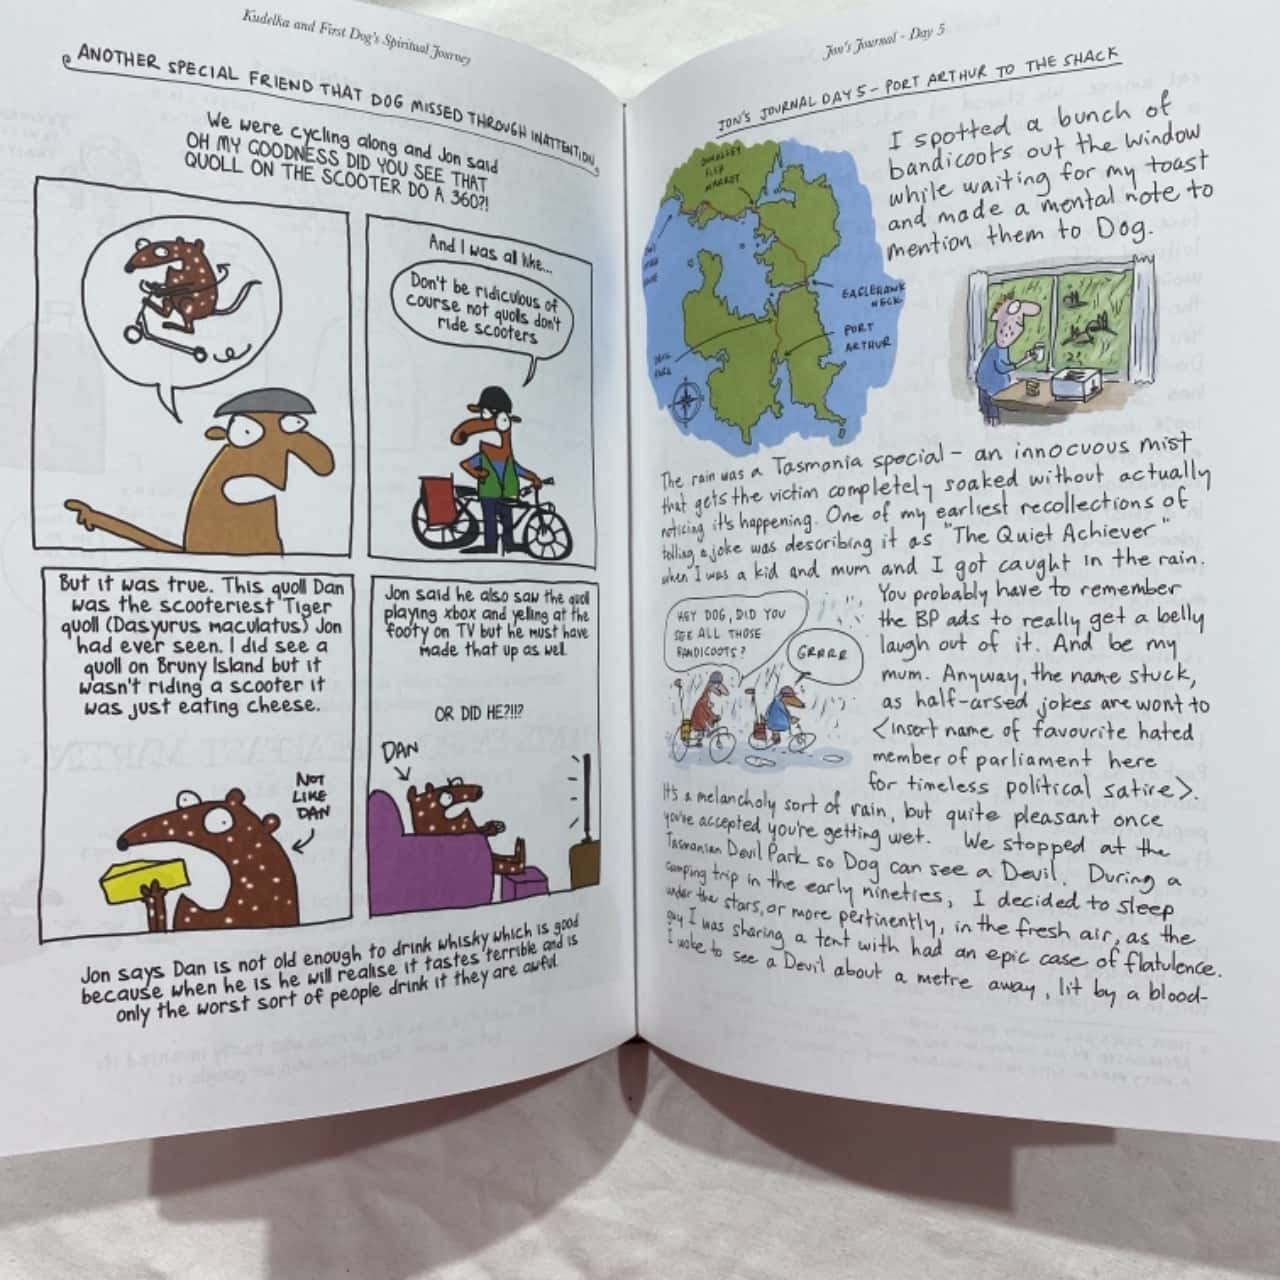 Kudelka and First Dog's Spiritual Journey
ANOTHER SPECIAL FRIEND THAT DOG MISSED THROUGH INATTENTION
We were cycling along and Jon said
OH MY GOODNESS DID YOU SEE THAT
QUOLL ON THE SCOOTER DO A 360?!
And I was all like...
Don't be ridiculous of
course not quolls don't
ride scooters
But it was true. This quoll Dan
was the scooteriest Tiger
quoll (Dasyurus maculatus) Jon
had ever seen. I did see a
quoll on Bruny Island but it
wasn't riding a scooter it
was just eating cheese.
NOT
LIKE
DAN
Jon said he also saw the quoll
playing xbox and yelling at the
footy on TV but he must have
made that up as well.
OR DID HE?!!?
DAN
Jon says Dan is not old enough to drink whisky which is good
because when he is he will realise it tastes terrible and is
only the worst sort of people drink it they are awful
Jon's Journal - Day 5
JON'S JOURNAL DAY 5 - PORT ARTHUR TO THE SHACK
I spotted a bunch of
bandicoots out the window
while waiting for my toast
and made a mental note to
mention them to Dog.
DUNALLEY
FISH
MARKET
EAGLEHAWK
NECK
PORT
ARTHUR
The rain was a Tasmania special - an innocuous mist
that gets the victim completely soaked without actually
noticing it's happening. One of my earliest recollections of
telling a joke was describing it as "The Quiet Achiever"
when I was a kid and mum and I got caught in the rain.
HEY DOG, DID YOU
SEE ALL THOSE
BANDICOOTS?
GRRRR
You probably have to remember
the BP ads to really get a belly
laugh out of it. And be my
mum. Anyway, the name stuck,
as half-arsed jokes are wont to
<insert name of favourite hated
member of parliament here
for timeless political satire>.
It's a melancholy sort of rain, but quite pleasant once
you've accepted you're getting wet. We stopped at the
Tasmanian Devil Park so Dog can see a Devil. During a
camping trip in the early nineties, I decided to sleep
under the stars, or more pertinently, in the fresh air, as the
guy I was sharing a tent with had an epic case of flatulence.
I woke to see a Devil about a metre away, lit by a blood-